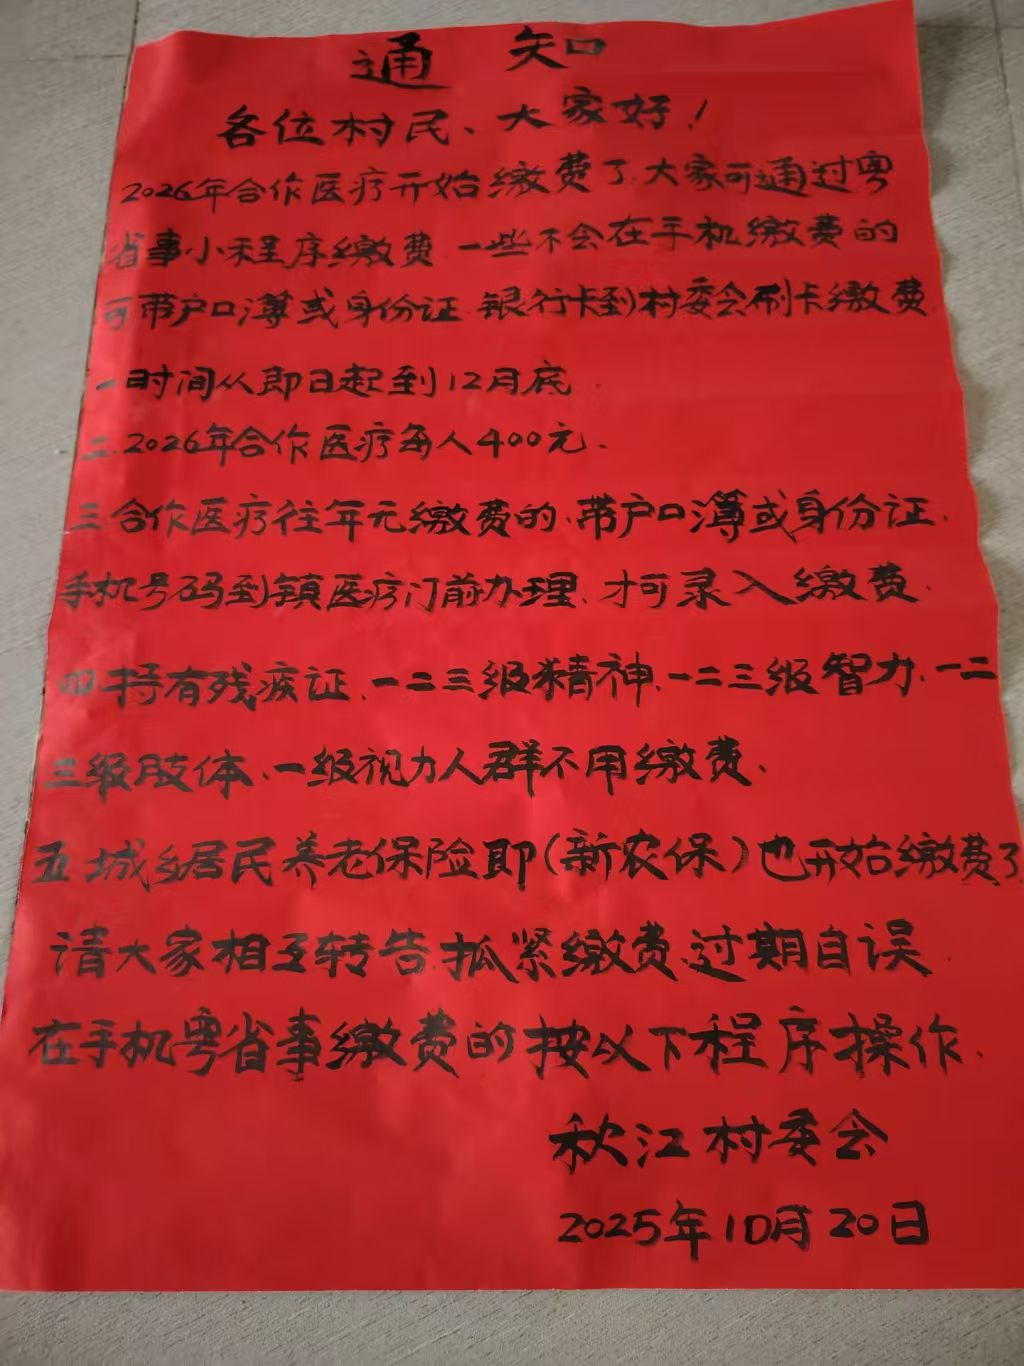 通知
各位村民、大家好！
2026年合作医疗开始缴费了.大家可通过粤
省事小程序缴费.一些不会在手机缴费的
可带户口簿或身份证.银行卡到村委会刷卡缴费
一时间从即日起到12月底.
二.2026年合作医疗每人400元.
三.合作医疗往年无缴费的.带户口簿或身份证.
手机号码到镇医疗门前办理、才可录入缴费.
四.持有残疾证、一二三级精神、一二三级智力、一二
三级肢体、一级视力人群不用缴费、
五.城乡居民养老保险即(新农保)也开始缴费了.
请大家相互转告.抓紧缴费.过期自误.
在手机粤省事缴费的按以下程序操作.
秋江村委会
2025年10月20日